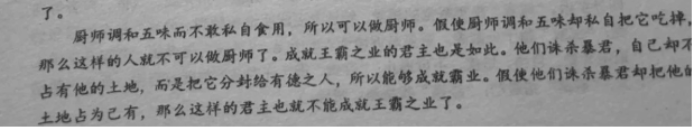 了。
厨师调和五味而不敢私自食用，所以可以做厨师。假使厨师调和五味却私自把它吃掉，
那么这样的人就不可以做厨师了。成就王霸之业的君主也是如此。他们诛杀暴君，自己却不
占有他的土地，而是把它分封给有德之人，所以能够成就霸业。假使他们诛杀暴君却把他的
土地占为己有，那么这样的君主也就不能成就王霸之业了。